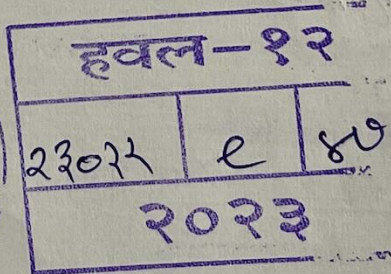 हवल-१२
२३०२२ ९ ४७
२०२३